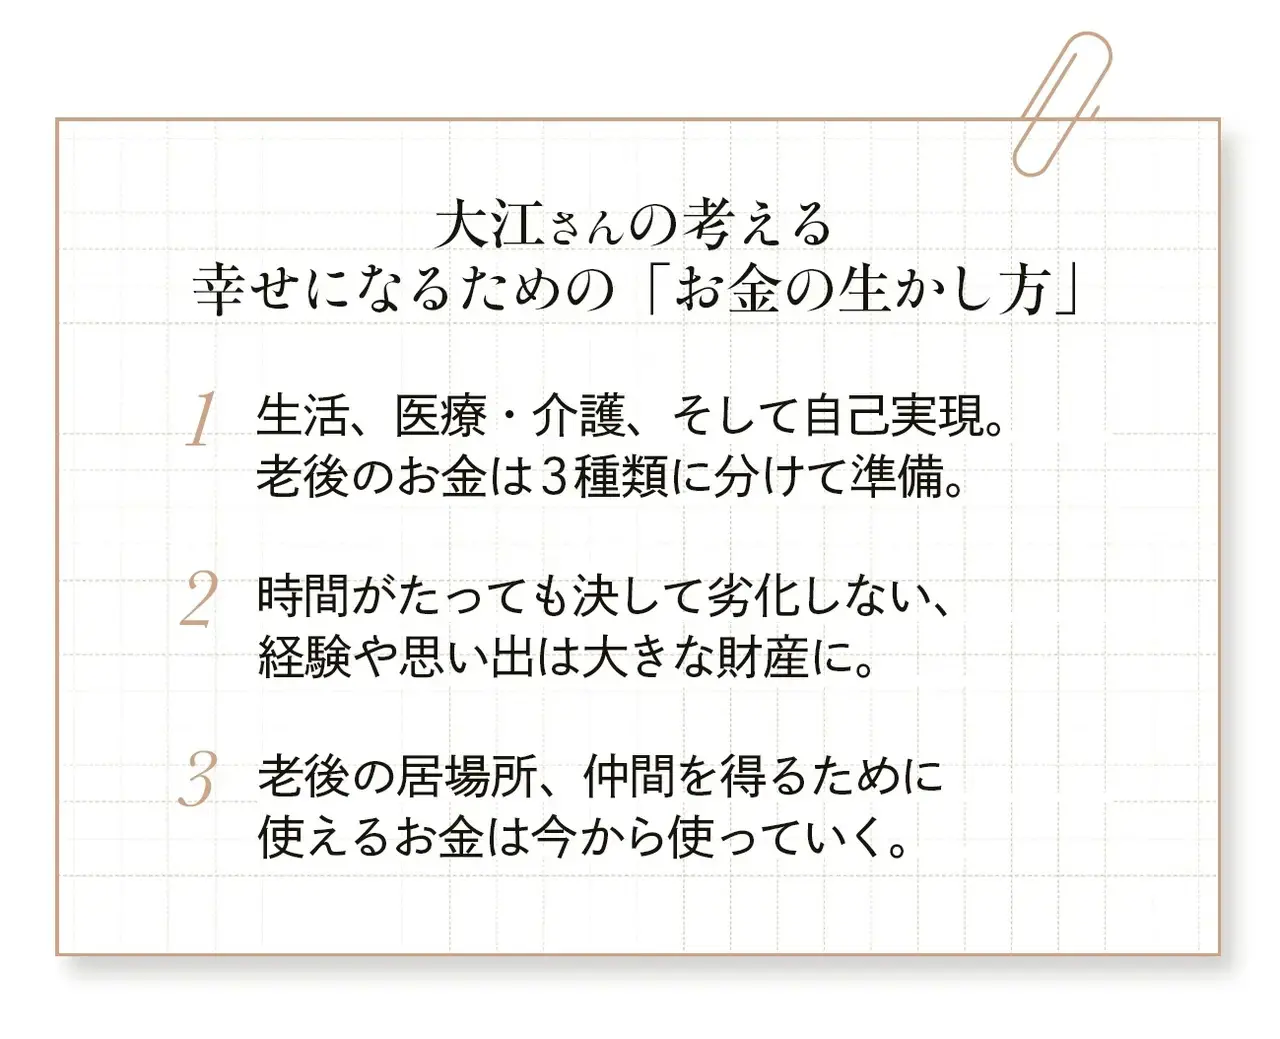 大江さんの考える
幸せになるための「お金の生かし方」
1 生活、医療・介護、そして自己実現。
老後のお金は3種類に分けて準備。
2 時間がたっても決して劣化しない、
経験や思い出は大きな財産に。
3 老後の居場所、仲間を得るために
使えるお金は今から使っていく。